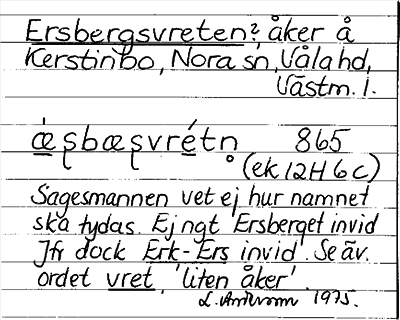 Ersbergsvreten? åker å
Kerstinbo, Nora sn, Våla hd,
Västm. l.
ǽʂbæʂvrétn̥ 865
(ek 12H 6c)
Sagesmannen vet ej hur namnet
ska tydas. Ej ngt Ersberget invid
Jfr dock Erk-Ers invid. Se äv.
ordet vret, 'liten åker'.
L. Andersson 1975.